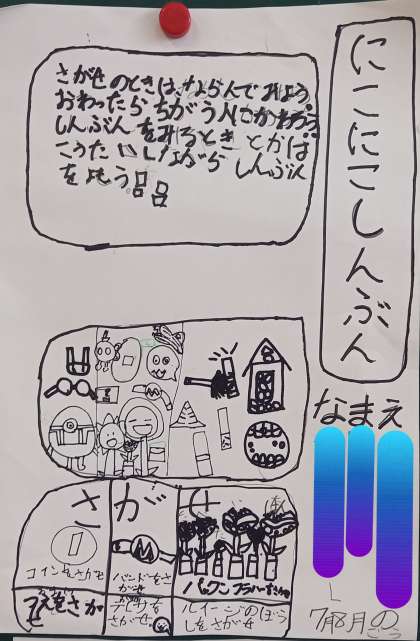 にこにこしんぶん
さがせのときは、ならんでみよう
おわったら ちがう人にかわろう
しんぶん をみるとき とかは
こうたいしながら しんぶん
を比う
なまえ
7月8月の
さがせ
コインをさがせ
バンドをさがせ
パックンフラワーをさがせ
をさが
テレサをさがせ
ルイージのぼうしをさがせ
M